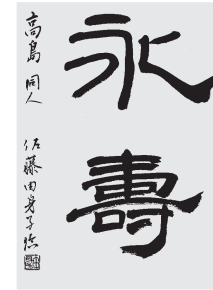 永壽
高島 同人 佐藤由身子臨